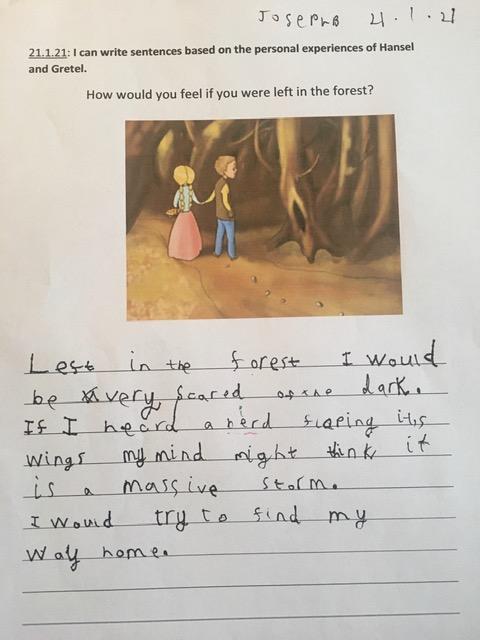 Joseph B 21.1.21
21.1.21: I can write sentences based on the personal experiences of Hansel
and Gretel.
How would you feel if you were left in the forest?
Left in the forest I would
be very scared of the dark.
If I heard a berd flaping it,s
wings my mind might think it
is a massive storm.
I would try to find my
way home.